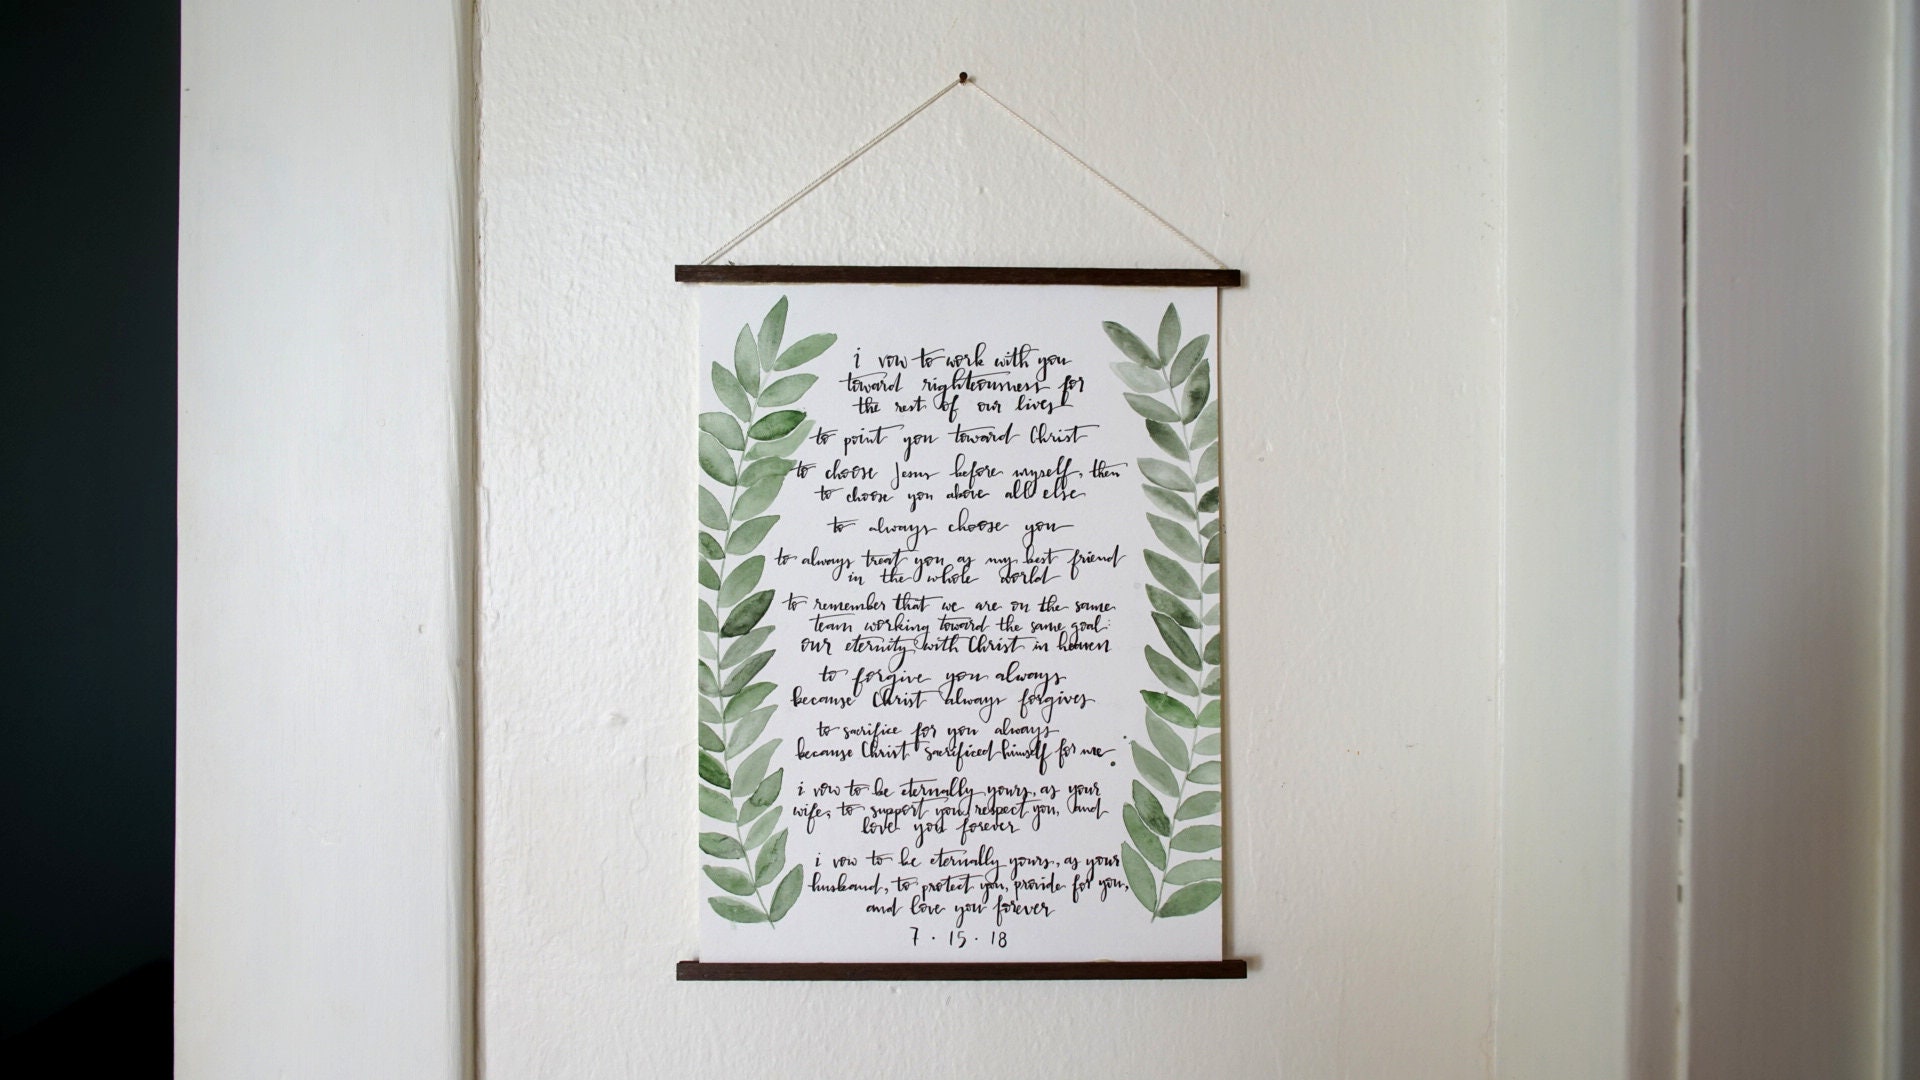 i vow to work with you
toward righteousness for
the rest of our lives
to point you toward Christ
to choose Jesus before myself, then
to choose you above all else
to always choose you
to always treat you as my best friend
in the whole world
to remember that we are on the same
team working toward the same goal:
our eternity with Christ in heaven
to forgive you always
because Christ always forgives
to sacrifice for you always
because Christ sacrificed himself for me.
i vow to be eternally yours, as your
wife, to support you, respect you, and
love you forever
i vow to be eternally yours, as your
husband, to protect you, provide for you,
and love you forever
7 · 15 · 18